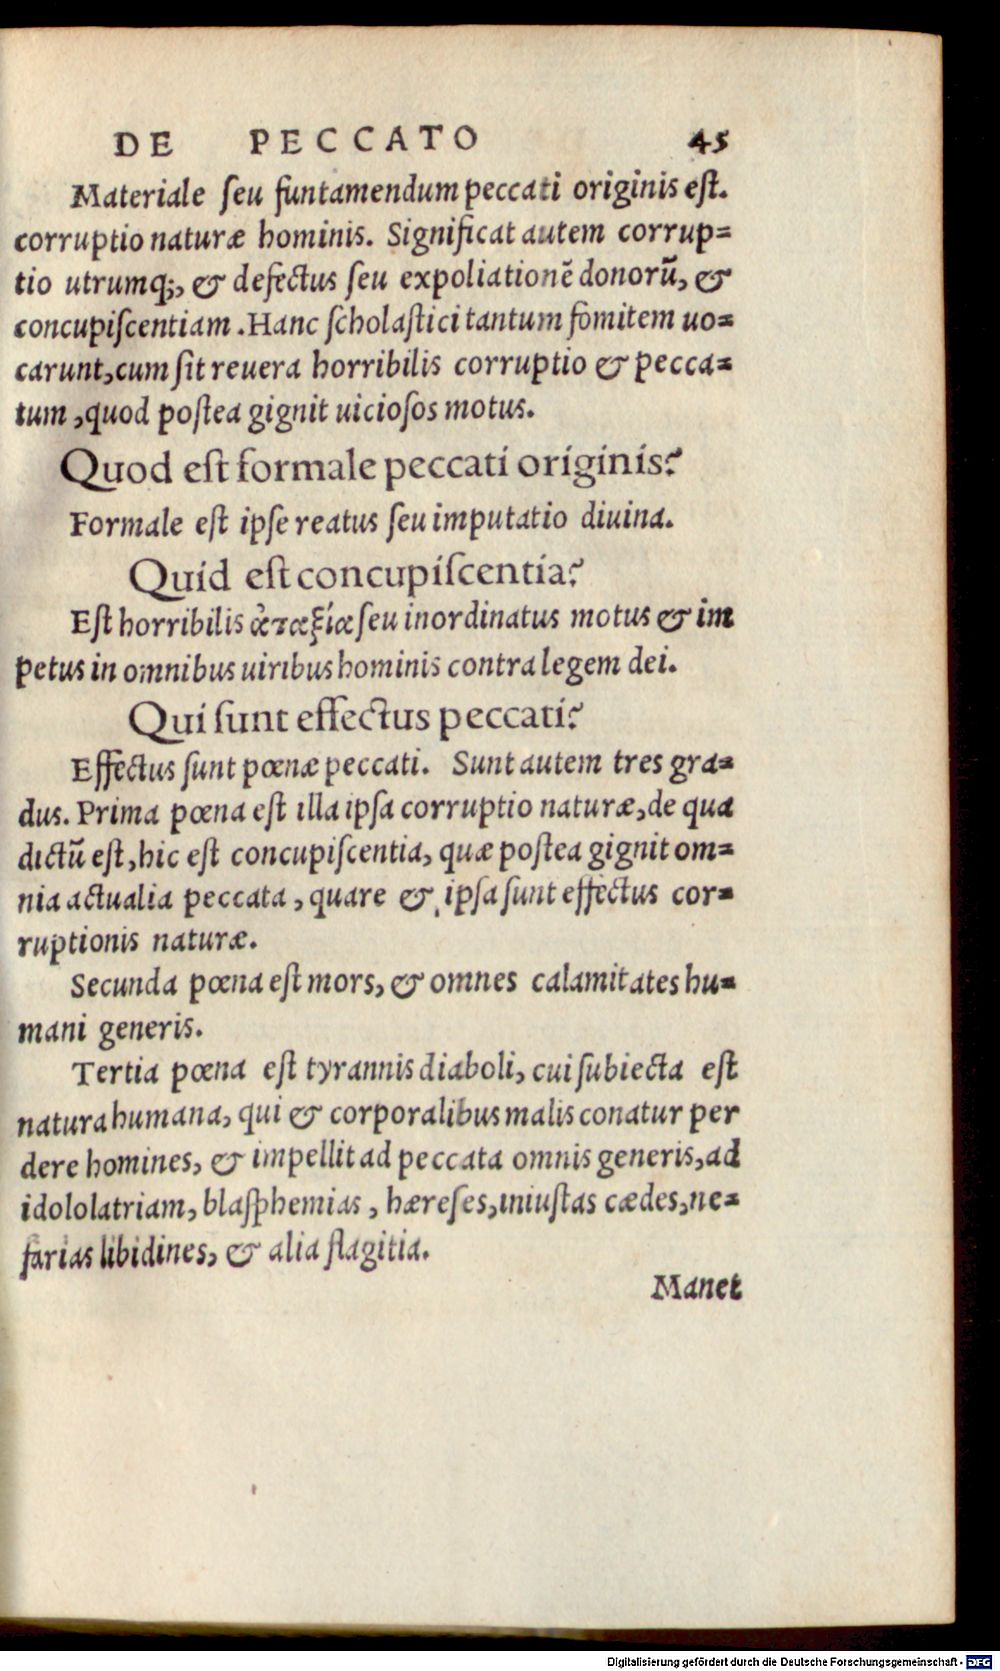 DE PECCATO 45
Materiale ſeu funtamendum peccati originis eſt.
corruptio naturæ hominis. Significat autem corrup=
tio utrumq;, & defectus ſeu expoliationē donorū, &
concupiſcentiam. Hanc ſcholaſtici tantum fomitem uo=
carunt, cum ſit reuera horribilis corruptio & pecca=
tum, quod poſtea gignit uicioſos motus.
Quod eſt formale peccati originis?
Formale eſt ipſe reatus ſeu imputatio diuina.
Quid eſt concupiſcentia?
Eſt horribilis ἀταξία ſeu inordinatus motus & im
petus in omnibus uiribus hominis contra legem dei.
Qui ſunt effectus peccati?
Effectus ſunt pœnæ peccati. Sunt autem tres gra=
dus. Prima pœna eſt illa ipſa corruptio naturæ, de qua
dictū eſt, hic eſt concupiſcentia, quæ poſtea gignit om=
nia actualia peccata, quare & ipſa ſunt effectus cor=
ruptionis naturæ.
Secunda pœna eſt mors, & omnes calamitates hu=
mani generis.
Tertia pœna eſt tyrannis diaboli, cui ſubiecta eſt
natura humana, qui & corporalibus malis conatur per
dere homines, & impellit ad peccata omnis generis, ad
idololatriam, blaſphemias, hæreſes, iniuſtas cædes, ne=
farias libidines, & alia flagitia.
Manet
Digitalisierung gefördert durch die Deutsche Forschungsgemeinschaft - DFG